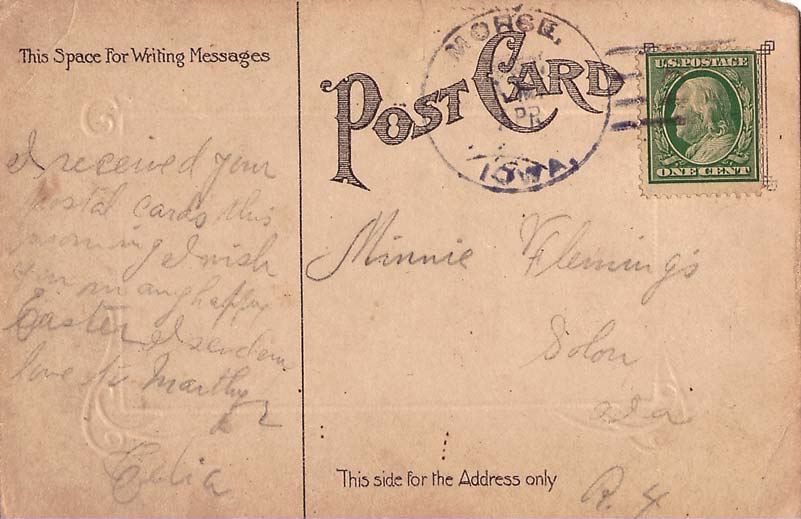 This Space For Writing Messages
I received your
postal cards this
morning I wish
you many happy
Easter I send my
love to Marthy
Celia
POST CARD
MORSE,
APR
IOWA,
U.S. POSTAGE
ONE CENT
Minnie Flemings
Solon
Ia
R. 4
This side for the Address only